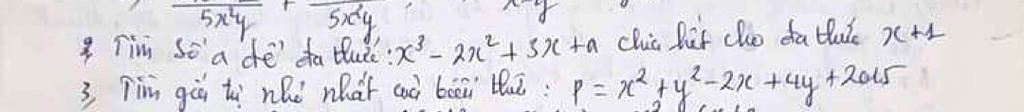 5x²y + 5x²y x-y
2, Tìm số a để đa thức: x³ - 2x² + 3x + a chia hết cho đa thức x+1
3, Tìm giá trị nhỏ nhất của biểu thức: P = x² + y² - 2x + 4y + 2015